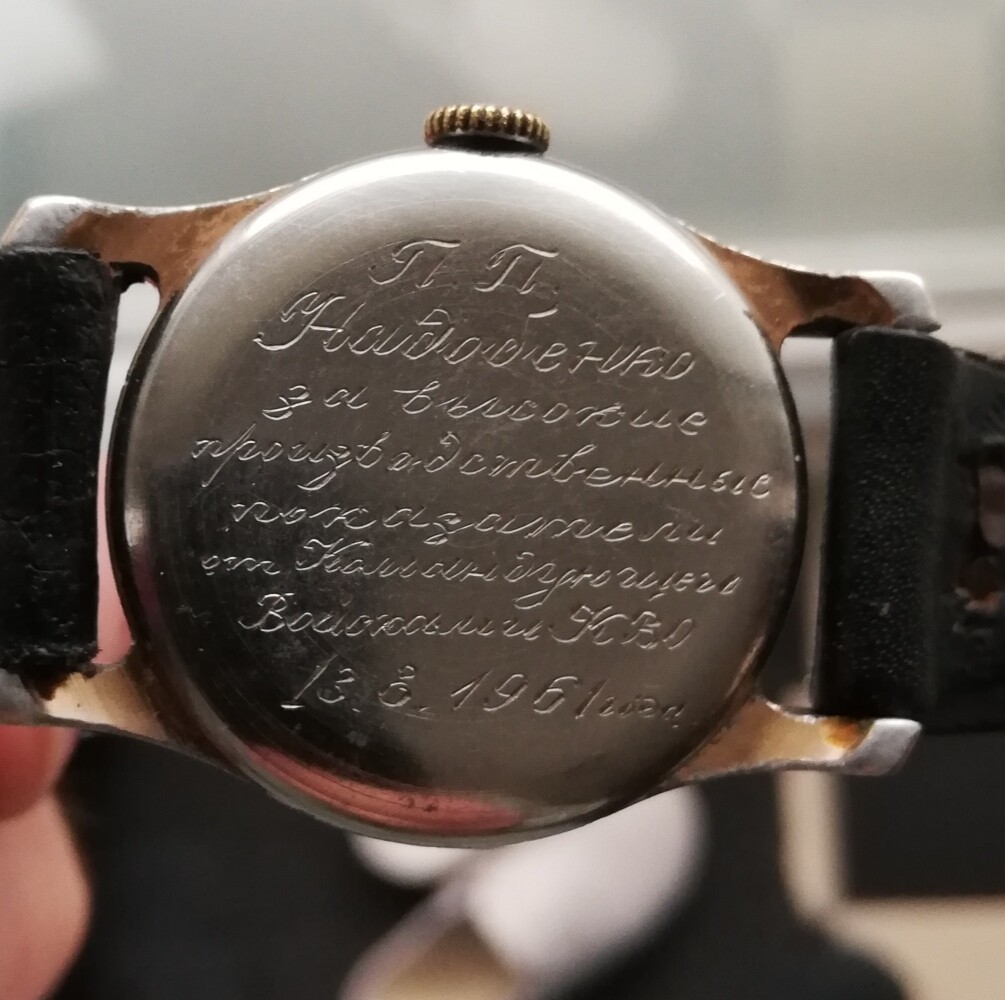 П. П.
Надобенко
за высокие
производственные
показатели
от Командующего
Войсками КВО
13.8.1961 года